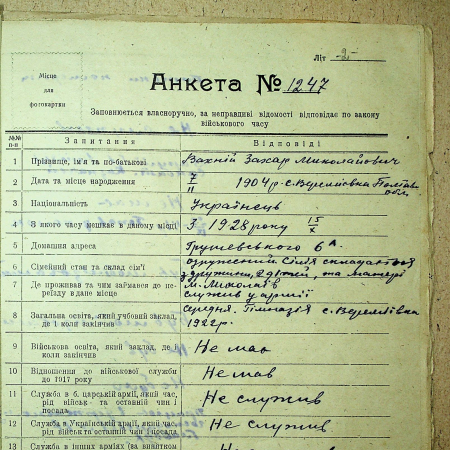 Літ -2-
Місце
для
фотокартки
Анкета № 1247
Заповнюється власноручно, за неправдиві відомості відповідає по закону
військового часу
№№ п-п Запитання Відповіді
1 Прізвище, ім'я та по-батькові Вахній Захар Миколайович
2 Дата та місце народження 7/II 1904р. с. Веремїївка Полтав.
обл.
3 Національність Українець
4 З якого часу мешкає в даному місці З 1928 року 15/X
5 Домашня адреса Грушевського 6а
6 Сімейний стан та склад сім'ї одружений Сімя складається
з дружини, 2 дітей, та матері
7 Де проживав та чим займався до пе-
реїзду в дане місце
м. Миколаїв
служив у армії
8 Загальна освіта, який учбовий заклад,
де і коли закінчив
середня. Гімназія с. Веремїївка
1922г.
9 Військова освіта, який заклад, де і
коли закінчив
Не маю
10 Відношення до військової служби
до 1917 року
Не мав
11 Служба в б. царській армії, який час,
рід військ та останній чин і
посада
Не служив
12 Служба в Українській армії, який час,
рід військ та останній чин і посада
Не служив
13 Служба в інших арміях (за винятком